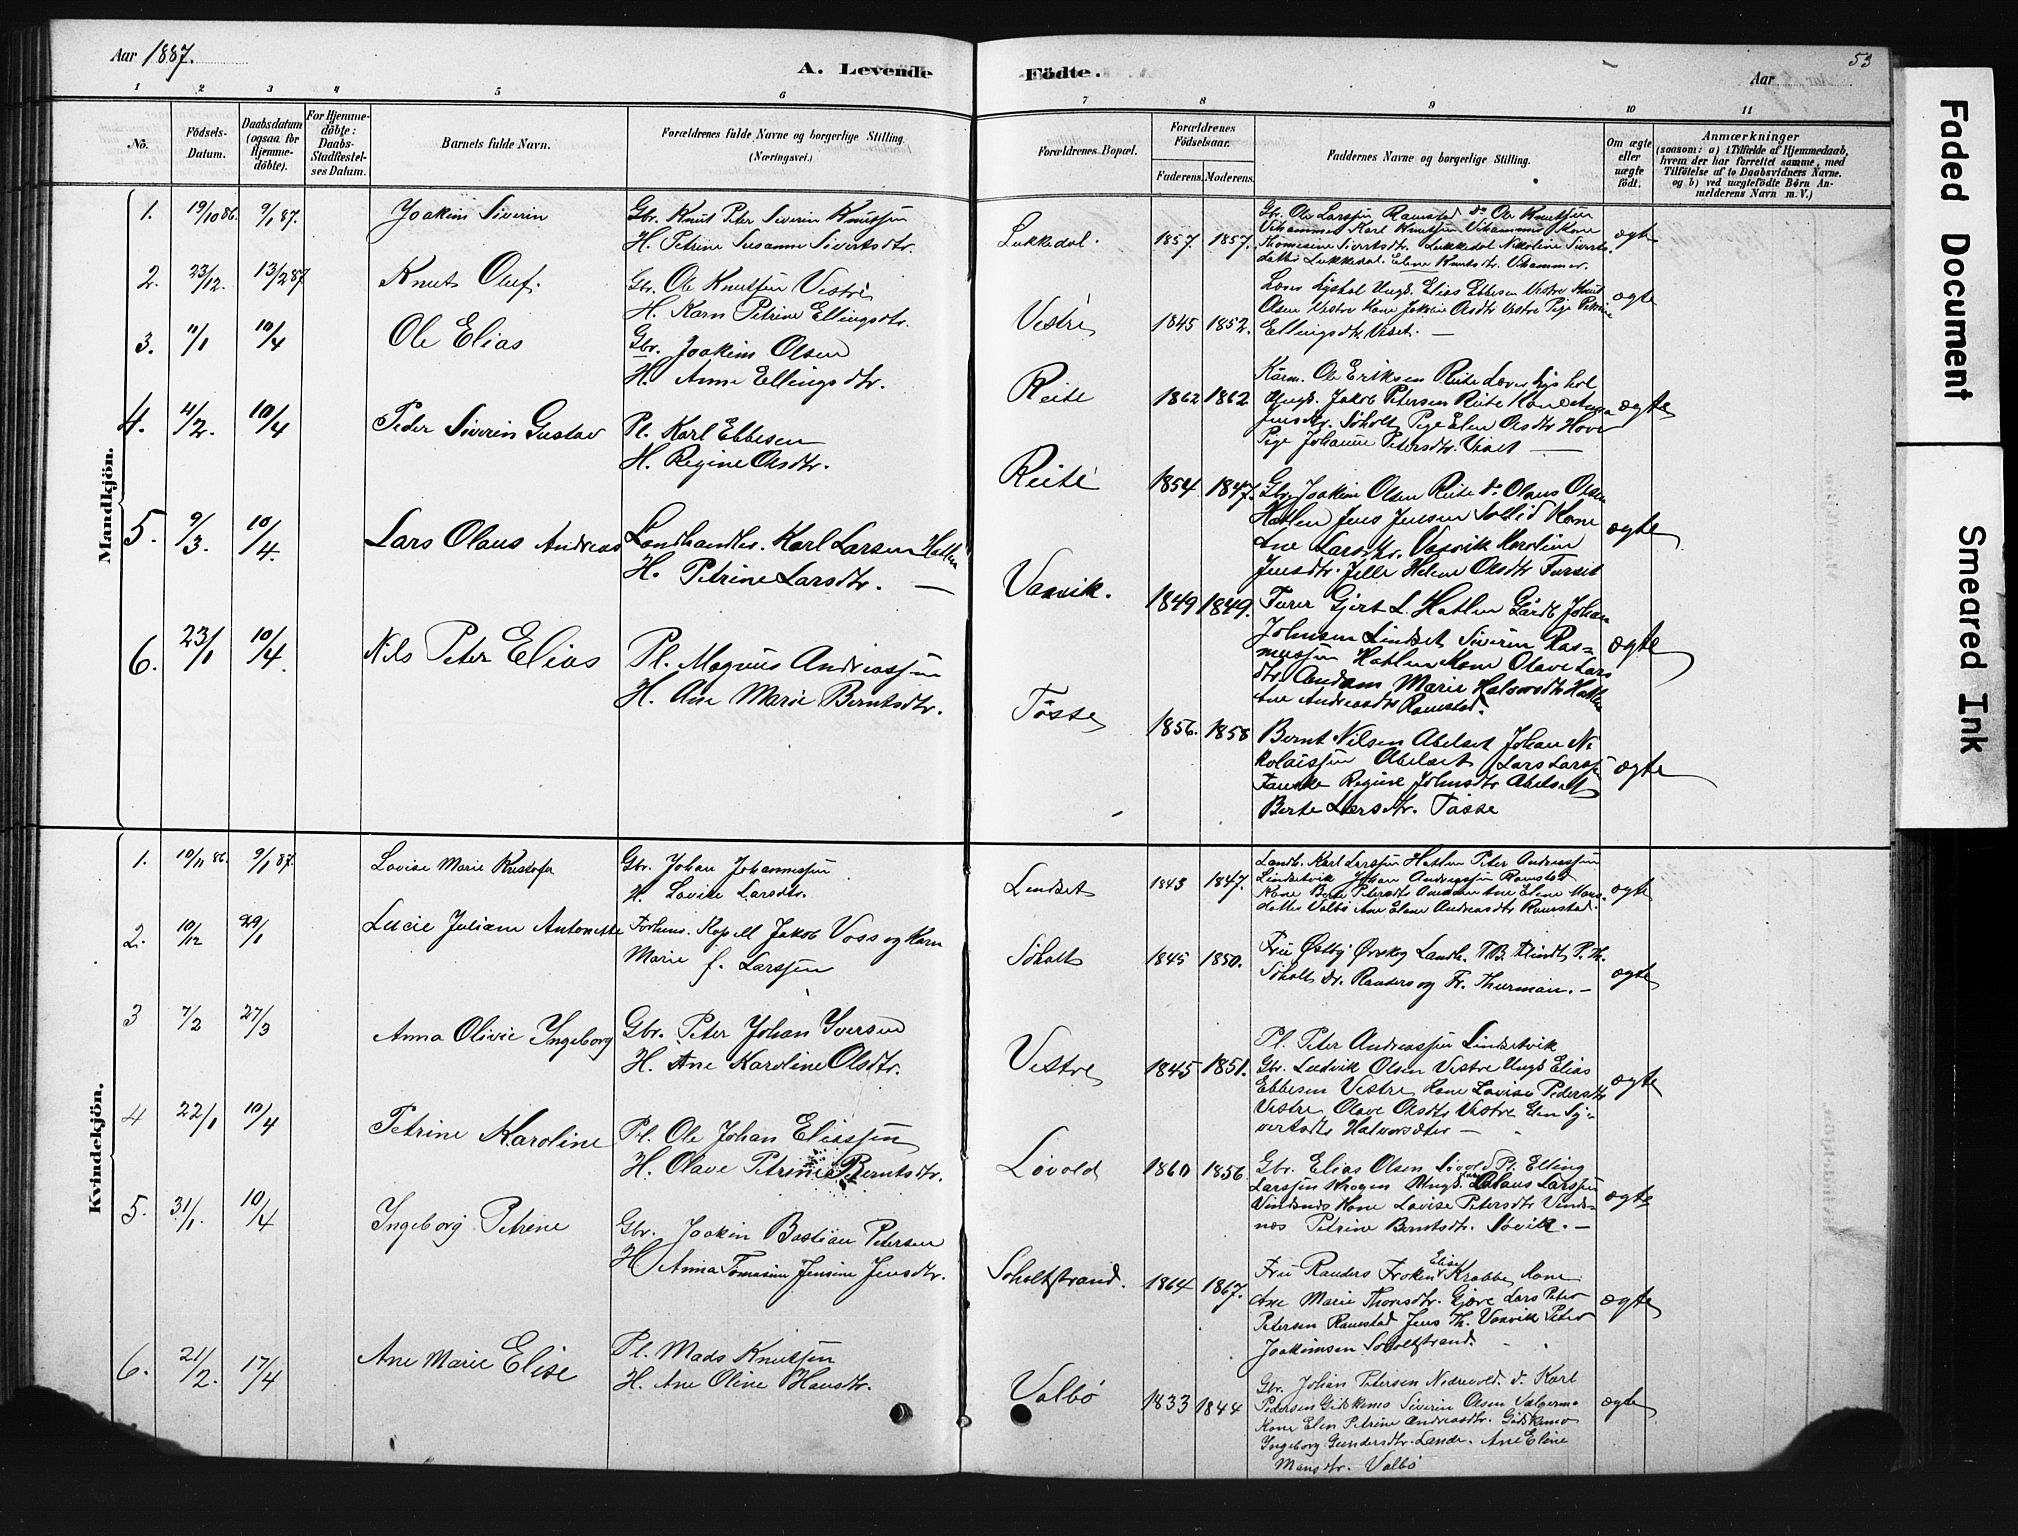 Aar 1887.
A. Levende Födte.
Aar
53
1 2 3 4 5 6 7 8 9 10 11
No.
Födsels-Datum.
Daabsdatum (ogsaa for Hjemme-döbte).
For Hjemme-döbte: Daabs-Stadfæstel-ses Datum.
Barnets fulde Navn.
Forældrenes fulde Navne og borgerlige Stilling.
(Næringsvei.)
Forældrenes Bopæl.
Forældrenes Födselsaar.
Faderens. Moderens.
Faddernes Navne og borgerlige Stilling.
Om ægte eller uægte födt.
Anmærkninger
(saasom: a) i Tilfælde af Hjemmedaab,
hvem der har forrettet samme, med
Tilföielse af to Daabsvidners Navne.
og b) ved uægtefödte Börn An-
melderens Navn m. V.)
Mandkjön.
1. 19/10 86. 9/1 87. Joakim Siverin
Gbr. Knut Peter Siverin Knutsen
H. Petrine Susanne Sivertsdtr.
Lukkedal. 1857. 1857.
Gbr. Ole Larssen Ramstad do Ole Knutsen
Vihammer Karl Knutsen Vihammer Kone
Thomasine Sivertsdtr. Lukkedal Nikoline Siverts-
datter Lukkedal. Elene Knutsdtr. Vihammer.
ægte
2. 23/12. 13/2 87 Knut Oluf.
Gbr. Ole Knutsen Vestre
H. Karn Petrine Ellingsdtr.
Vestre 1845 1852.
Elias Ebbesen Vestre Knut
Olsen Vestre Kone Olsdtr Vestre Pige Petrine
Ellingsdtr Viset. —
ægte
3. 11/1 10/4 Ole Elias
Gbr. Joakim Olsen
H. Anne Ellingsdtr.
Reite 1862 1862
Ole Eriksen Reite
Ungk. Jakob Petersen Reite Kone Anna
Jensdtr. Søholt Pige Elen Olsdtr Hove
Pige Johanne Petersdtr. Viset —
ægte
4. 4/2. 10/4 Peder Siverin Gustav
Pl. Karl Ebbesen
H. Regine Olsdtr.
Reite 1854 1847.
Gbr. Joakim Olsen Reite do Olaus Olsen
Hatlen Jens Jensen Sollid Kone
Ane Larsdtr. Vaxvik Karoline
Jensdtr. Helene Olsdtr
ægte
5. 9/3. 10/4. Lars Olaus Andreas
Landhandler. Karl Larsen Hatlen
H. Petrine Larsdtr. —
Vaxvik. 1849 1849.
Gjert L. Hatlen Johan
Johnsen Lindset Siverin Ras-
mussen Hatlen Kone Olave Lars
dtr. Amdam Marie Halvorsdtr Hatlen
Ane Andreasdtr Ramstad.
ægte
6. 23/1 10/4. Nils Peter Elias
Pl. Magnus Andreassen
H. Ane Marie Berntsdtr.
Tøsse 1856. 1858
Bernt Nilsen Abelset Johan Ni
kolaissen Abelset Lars Larssen
Regine Johnsdtr Abelset
Berte Larsdtr. Tøsse
ægte
Kvindekjön.
1. 10/11 86. 9/1 87. Lovise Marie
Gbr. Johan Johannessen
H. Lovise Larsdtr.
Lindset 1843 1847.
Landh. Karl Larssen Hatlen Peter Andreassen
Lindsetvik Johan Andreassen Ramstad
Kone Berte Petersdtr Amdam Ane Elene Mons-
datter Valbø Ane Elene Andreasdtr Ramstad.
ægte
2. 10/12 29/1 Lucie Juliane Antonette
Jakob Voss og Karn
Marie f. Larssen
Søholt 1845 1850.
Fru Østby Ørskog Landh.
Søholt Dr. Randers og Fr. Thurman. —
ægte
3 7/2 27/3 Anna Olivie Ingeborg
Gbr. Peter Johan Iversen
H. Ane Karoline Olsdtr.
Vestre 1845 1851.
Pl. Peter Andreassen Lindsetvik
Gbr. Ludvik Olsen Vestre Ungk Elias
Ebbesen Vestre Kone Lovise Pedersdtr
Vestre Olave Olsdtr Vestre Elen Sy-
—
ægte
4 22/1 10/4 Petrine Karoline
Pl. Ole Johan Eliassen
H. Olave Petrine Berntsdtr.
Løvold 1860 1856
Gbr. Elias Olsen Løvold Pl. Elling
Larssen Skogen Ungk. Olaus Larssen
Vindsnes Kone Lovise Petersdtr Vinds-
nes Petrine Berntsdtr. Søvik. —
ægte
5. 31/1. 10/4 Ingeborg Petrine
Gbr. Joakim Bastian Petersen
H. Anna Tomasine Jensine Jensdtr.
Søholtstrand. 1864 1867.
Fru Randers Frøken Elise Krabbe Kone
Ane Marie Thomsdtr. Gjøre Lars Peter
Petersen Ramstad Jens Th. Vaxvik Peter
Joakimsen Søholtstrand.
ægte
6. 21/2. 17/4 Ane Marie Elise
Pl. Mads Knutsen
H. Ane Oline Hansdtr.
Valbø 1833 1844
Gbr. Johan Petersen Nedrevold. do Karl
Pedersen Gidskemo Siverin Olsen
Kone Elen Petrine Andreasdtr. Gidskemo
Ingeborg Gundersdtr. Lande. Ane Eline
Monsdtr. Valbø
ægte
Faded Document
Smeared Ink